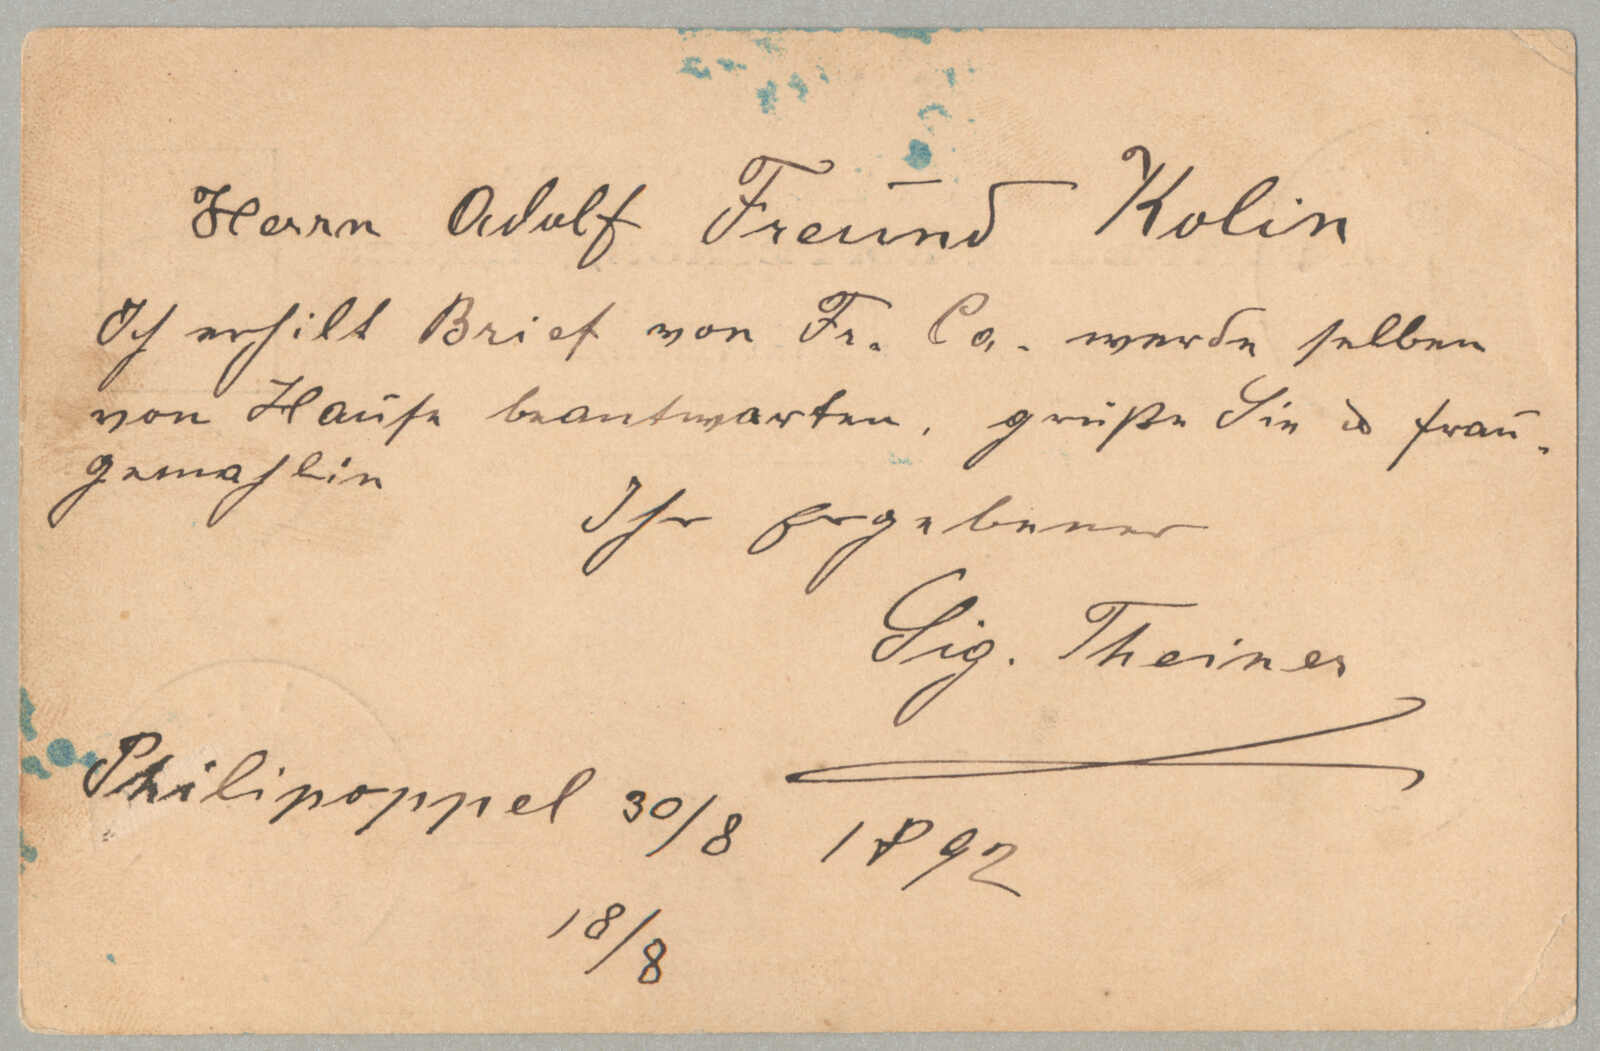 Herrn Adolf Freund Kolin
Ich erhilt Brief von Fr. Co. werde selben
von Hause beantwarten, grüße Sie & frau.
gemahlin
Ihr Ergebener
Sig. Theiner
Philipoppel 30/8 1892
18/8